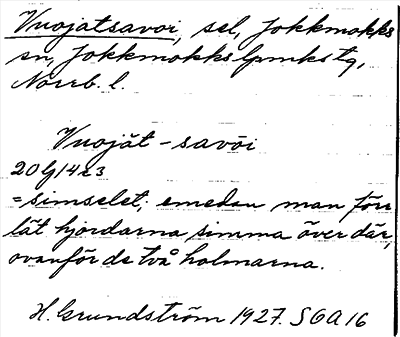 Vuojatsavoi, sel, Jokkmokks
sn, Jokkmokks lpmks tg,
Norrb. l.
Vuojăt - savōi
20
= simselet; emedan man förr
lät hjordarna simma över där,
ovanför de två holmarna.
H. Grundström 1927. SOA 16